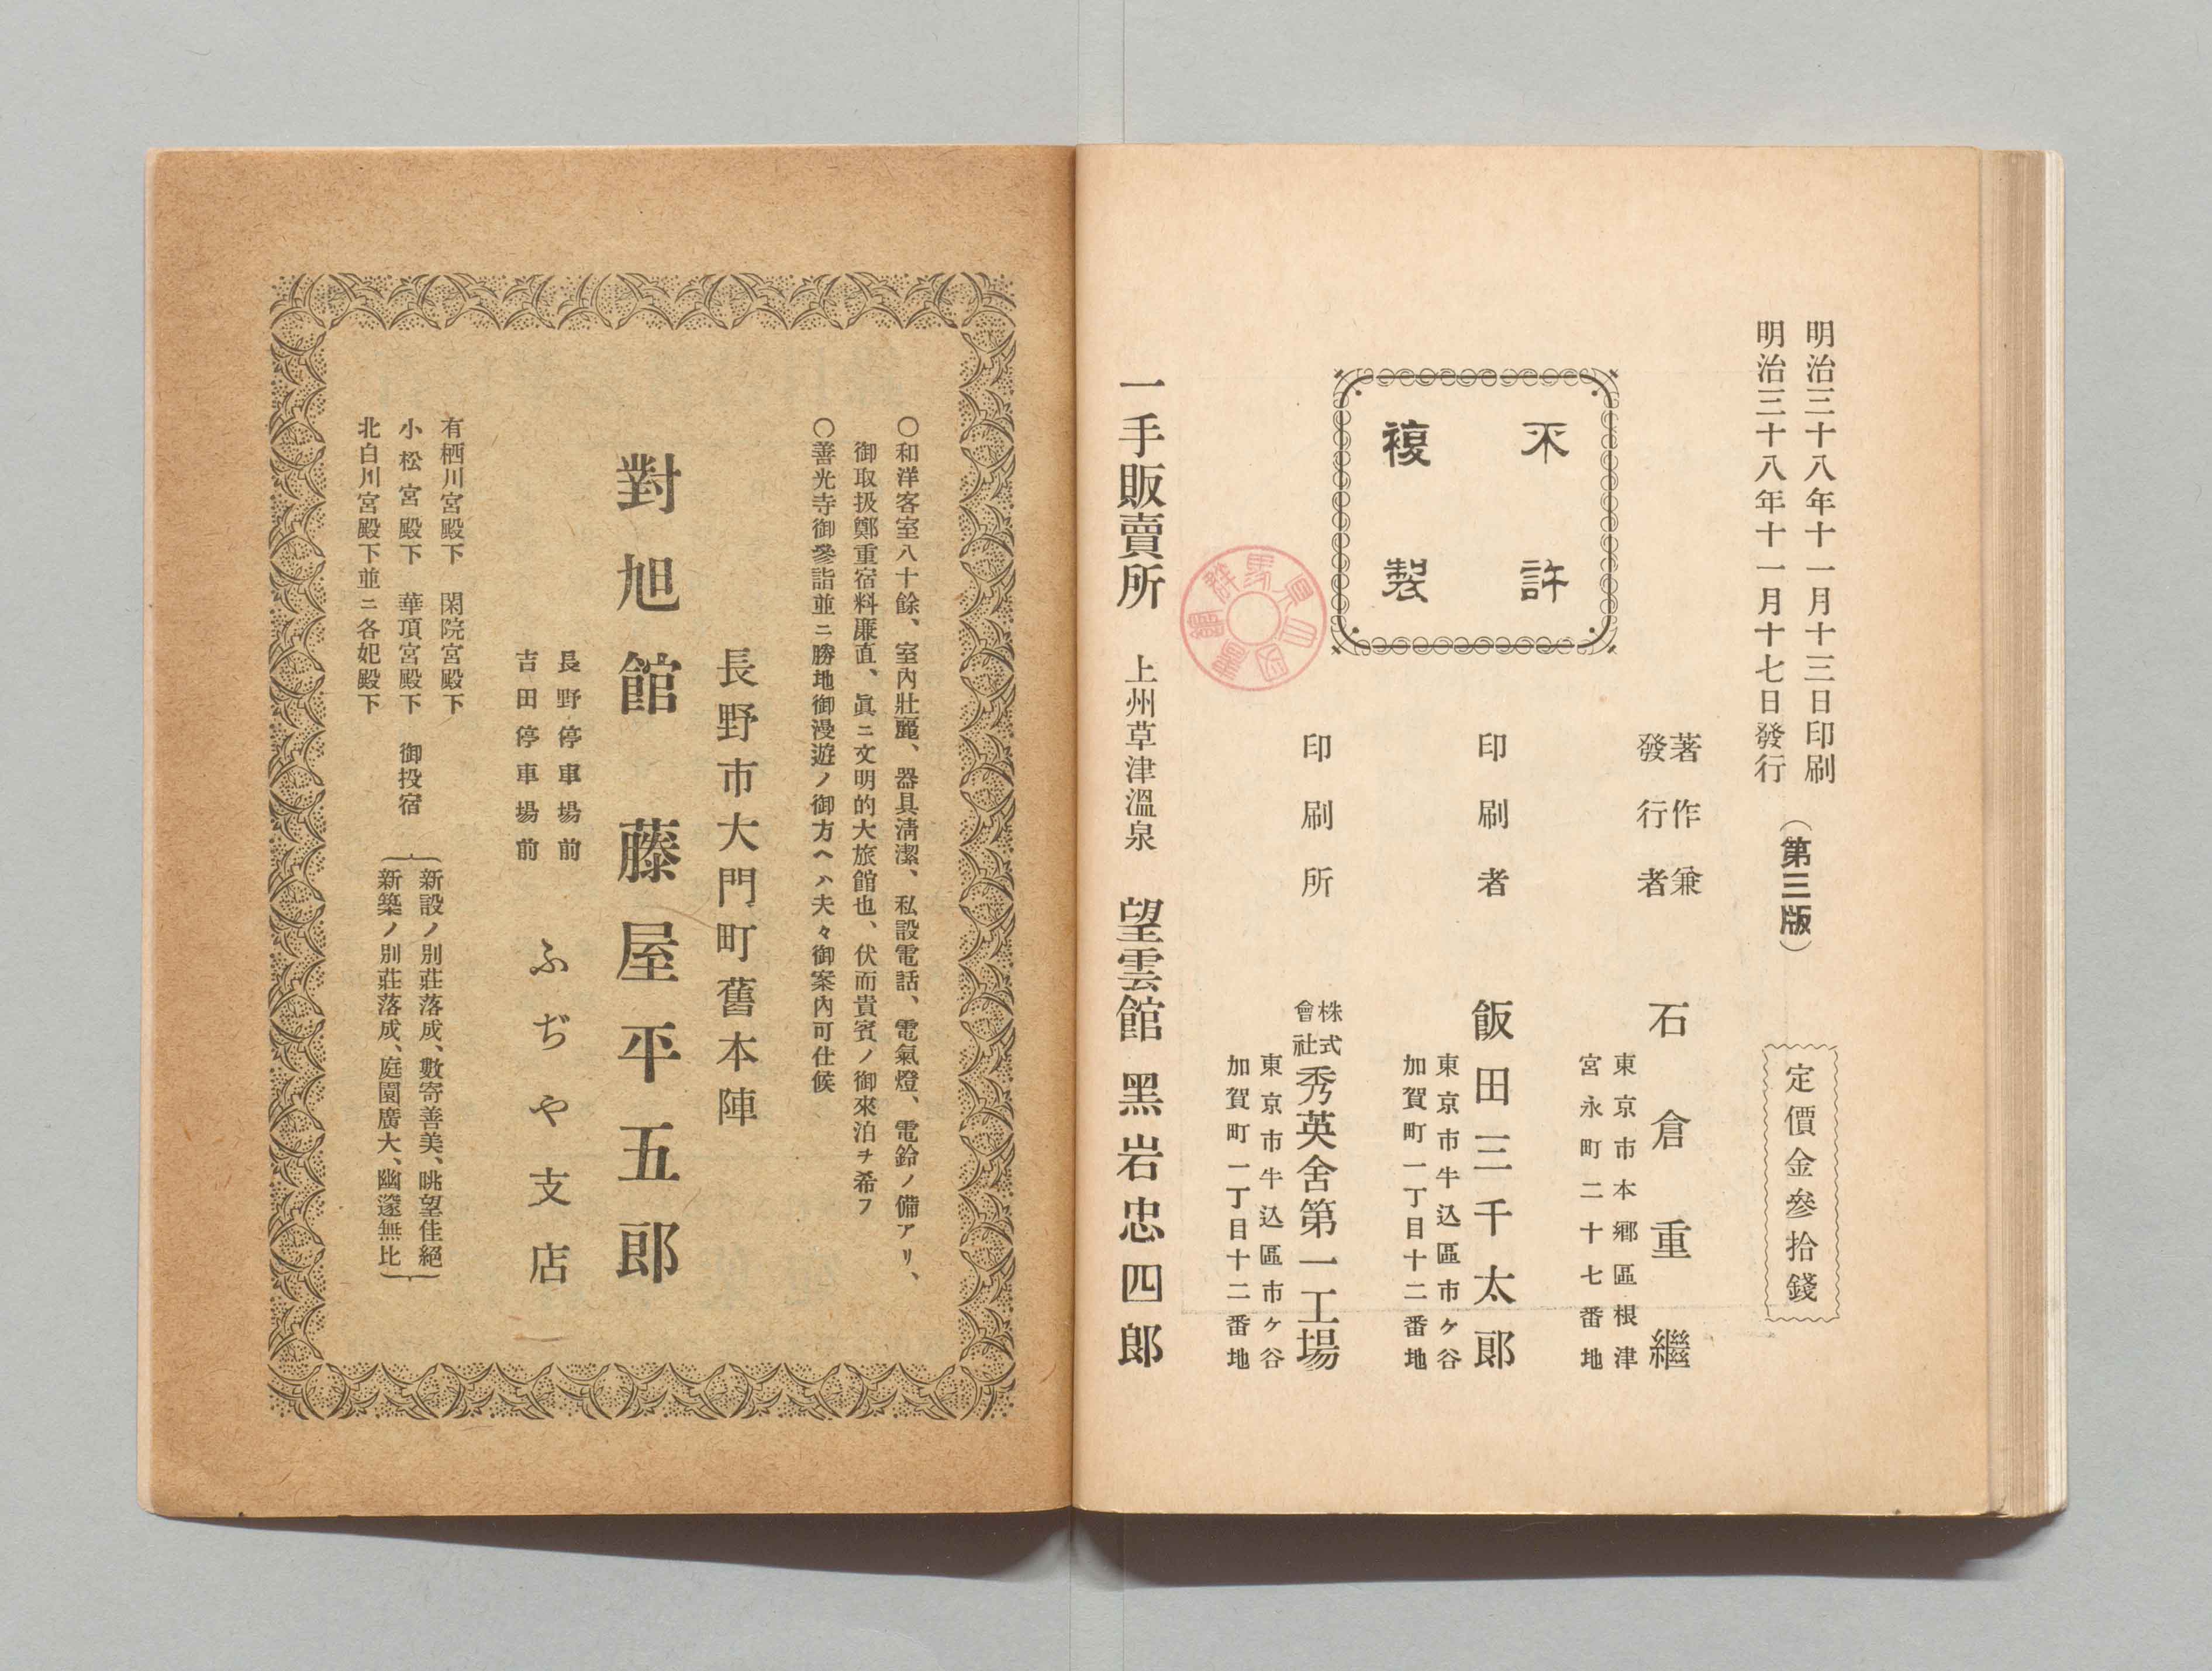 明治三十八年十一月十三日印刷
明治三十八年十一月十七日發行
（第三版）
定價金參拾錢
不許
複製
著作兼
發行者
石倉重繼
東京市本鄉區根津
宮永町二十七番地
印刷者
飯田三千太郎
東京市牛込區市ヶ谷
加賀町一丁目十二番地
印刷所
株式
會社
秀英舍第一工場
東京市牛込區市ヶ谷
加賀町一丁目十二番地
一手販賣所 上州草津溫泉 望雲館 黑岩忠四郎
〇和洋客室八十餘、室內壯麗、器具淸潔、私設電話、電氣燈、電鈴ノ備アリ、
御取扱鄭重宿料廉直、眞ニ文明的大旅館也、伏而貴賓ノ御來泊ヲ希フ
〇善光寺御參詣並ニ勝地御漫遊ノ御方ヘハ夫々御案內可仕候
長野市大門町舊本陣
對旭館 藤屋平五郎
長野停車場前
吉田停車場前
ふぢや支店
有栖川宮殿下 閑院宮殿下
小松宮殿下 華頂宮殿下 御投宿
北白川宮殿下並ニ各妃殿下
新設ノ別莊落成、數寄善美、眺望佳絕
新築ノ別莊落成、庭園廣大、幽邃無比